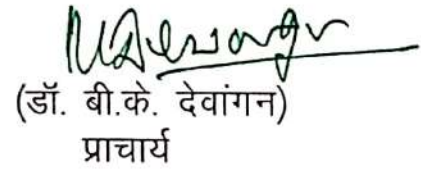 (डॉ. बी.के. देवांगन)
प्राचार्य